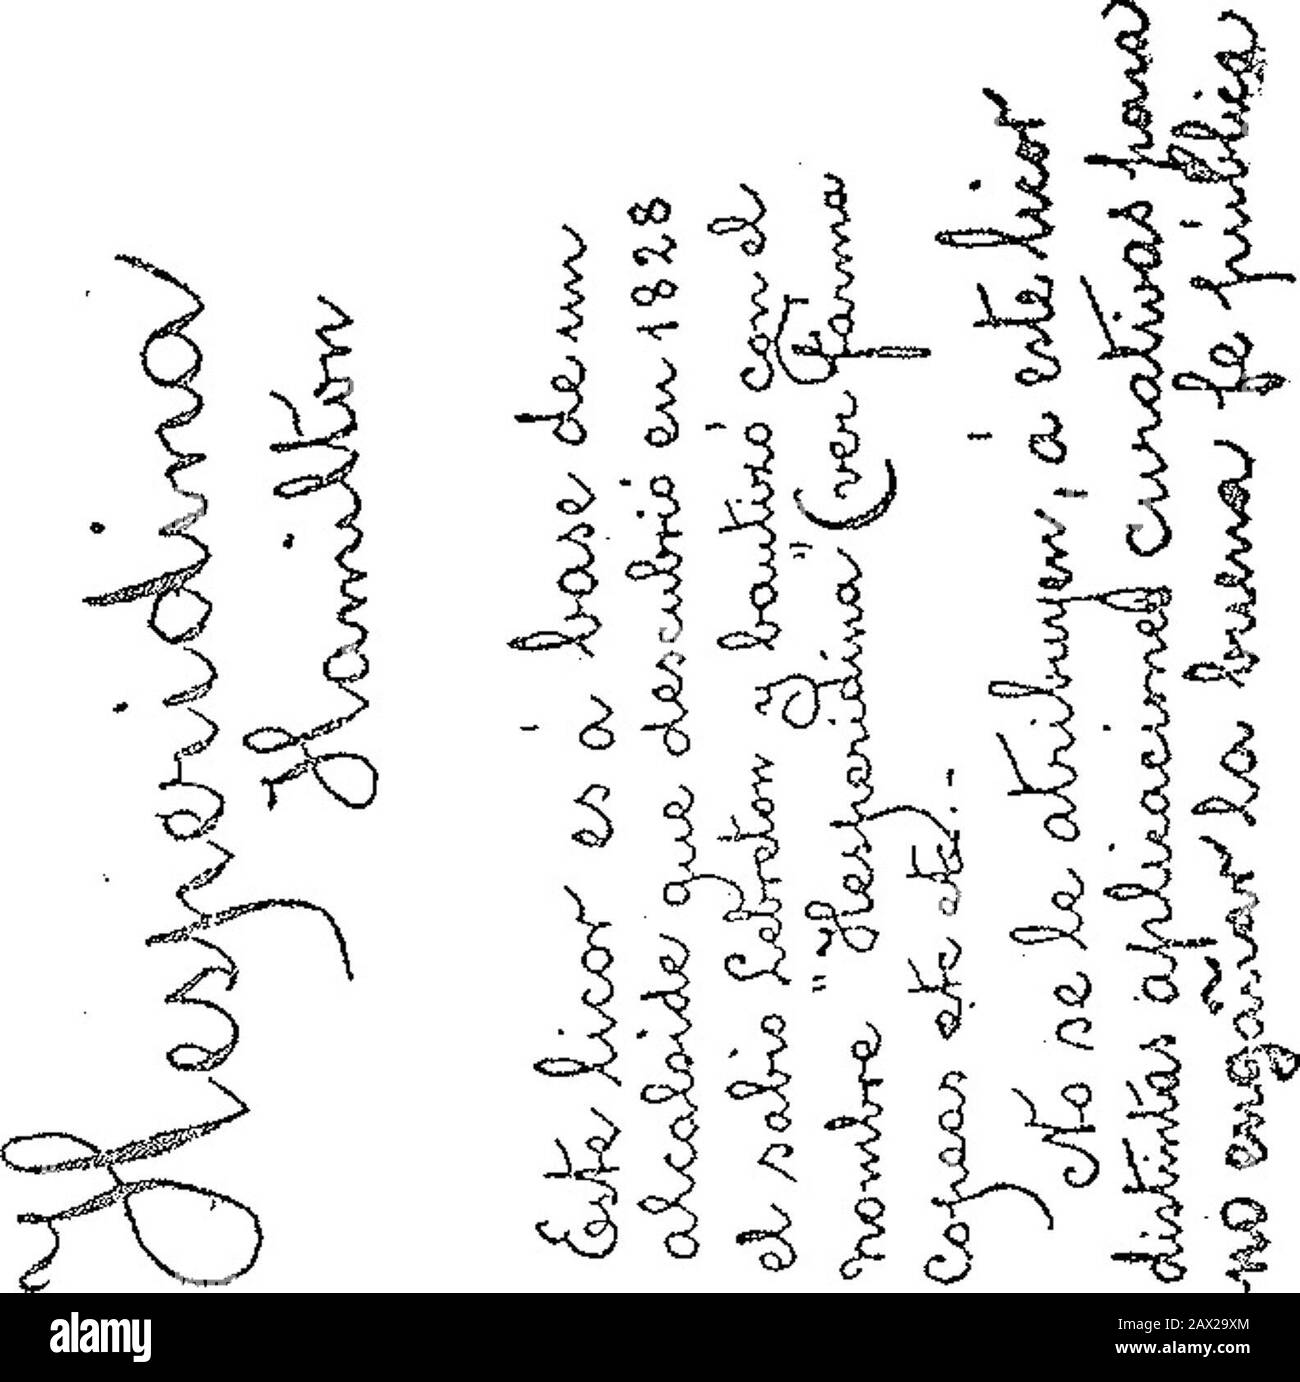 Hesperidina
Hamilton
Este licor es á base de un
alcaloide que descubrio en 1828
el sabio Lebreton y bautizó con el
nombre " Hesperidina " (ver Farma
copeas etc etc.-
No se le atribuyen á este licor
distintas aplicacines curativas para
no engañar la buena fe pública
alamy
Image ID: 2AX29XM
www.alamy.com